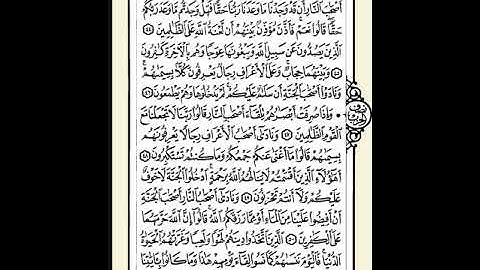 أَصْحَٰبَ ٱلنَّارِ أَن قَدْ وَجَدْنَا مَا وَعَدَنَا رَبُّنَا حَقًّا فَهَلْ وَجَدتُّم مَّا وَعَدَ رَبُّكُمْ
حَقًّا ۖ قَالُوا۟ نَعَمْ ۚ فَأَذَّنَ مُؤَذِّنٌۢ بَيْنَهُمْ أَن لَّعْنَةُ ٱللَّهِ عَلَى ٱلظَّٰلِمِينَ ٤٤
ٱلَّذِينَ يَصُدُّونَ عَن سَبِيلِ ٱللَّهِ وَيَبْغُونَهَا عِوَجًا وَهُم بِٱلْءَاخِرَةِ كَٰفِرُونَ
٤٥ وَبَيْنَهُمَا حِجَابٌ ۚ وَعَلَى ٱلْأَعْرَافِ رِجَالٌ يَعْرِفُونَ كُلًّۢا بِسِيمَىٰهُمْ ۚ
وَنَادَوْا۟ أَصْحَٰبَ ٱلْجَنَّةِ أَن سَلَٰمٌ عَلَيْكُمْ ۚ لَمْ يَدْخُلُوهَا وَهُمْ يَطْمَعُونَ ٤٦
۞ وَإِذَا صُرِفَتْ أَبْصَٰرُهُمْ تِلْقَآءَ أَصْحَٰبِ ٱلنَّارِ قَالُوا۟ رَبَّنَا لَا تَجْعَلْنَا مَعَ
ٱلْقَوْمِ ٱلظَّٰلِمِينَ ٤٧ وَنَادَىٰٓ أَصْحَٰبُ ٱلْأَعْرَافِ رِجَالًا يَعْرِفُونَهُم
بِسِيمَىٰهُمْ قَالُوا۟ مَآ أَغْنَىٰ عَنكُمْ جَمْعُكُمْ وَمَا كُنتُمْ تَسْتَكْبِرُونَ ٤٨
أَهَٰٓؤُلَآءِ ٱلَّذِينَ أَقْسَمْتُمْ لَا يَنَالُهُمُ ٱللَّهُ بِرَحْمَةٍ ۚ ٱدْخُلُوا۟ ٱلْجَنَّةَ لَا خَوْفٌ
عَلَيْكُمْ وَلَآ أَنتُمْ تَحْزَنُونَ ٤٩ وَنَادَىٰٓ أَصْحَٰبُ ٱلنَّارِ أَصْحَٰبَ ٱلْجَنَّةِ
أَنْ أَفِيضُوا۟ عَلَيْنَا مِنَ ٱلْمَآءِ أَوْ مِمَّا رَزَقَكُمُ ٱللَّهُ ۚ قَالُوٓا۟ إِنَّ ٱللَّهَ حَرَّمَهُمَا
عَلَى ٱلْكَٰفِرِينَ ٥٠ ٱلَّذِينَ ٱتَّخَذُوا۟ دِينَهُمْ لَهْوًا وَلَعِبًا وَغَرَّتْهُمُ ٱلْحَيَوٰةُ
ٱلدُّنْيَا ۚ فَٱلْيَوْمَ نَنسَىٰهُمْ كَمَا نَسُوا۟ لِقَآءَ يَوْمِهِمْ هَٰذَا وَمَا كَانُوا۟ بِـَٔايَٰتِنَا